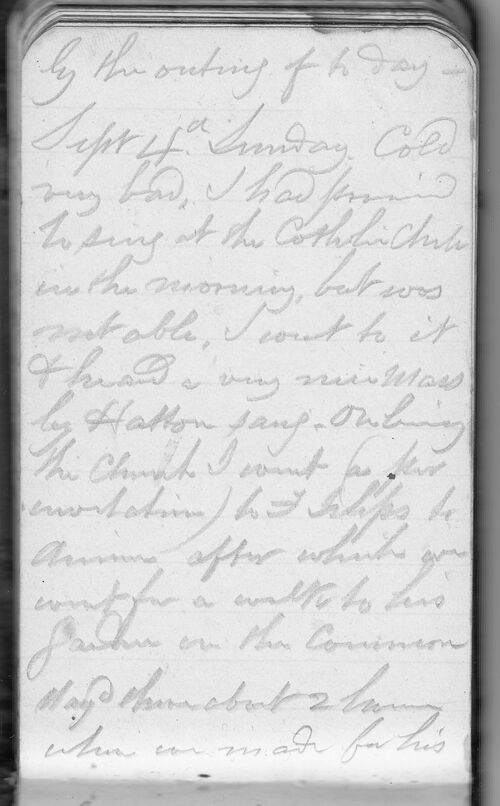 by the outing of to day –
Sept 4th Sunday. Cold
very bad, I had promised
to sing at the Catholic Chch
in the morning, but was
not able, I went to it
& heard a very nice Mass
by Hatton sang. On leaving
the Church I went (as per
invitation) to F to
dinner after which we
went for a walk to his
Garden on the Common
stayd there about 2 hours
when we made for his